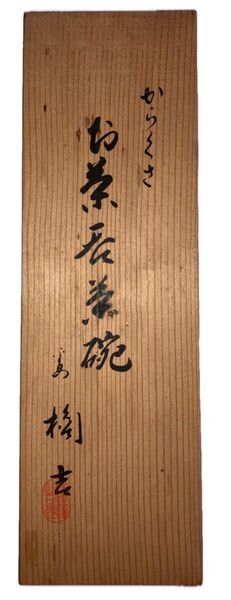 からくさ
お茶呑茶碗
吉